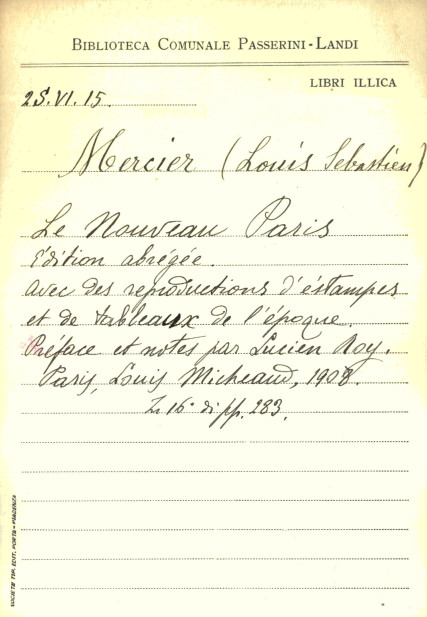 BIBLIOTECA COMUNALE PASSERINI-LANDI
LIBRI ILLICA
2S.VI.15.
Mercier (Louis Sebastien)
Le Nouveau Paris
Édition abrégée.
Avec des reproductions d'éstampes
et de tableaux de l'époque.
Préface et notes par Lucien Roy.
Paris, Louis Micheaud, 1908.
In 16° di pp. 283.
SOCIETÀ TIP. EDIT. PORTA - PIACENZA